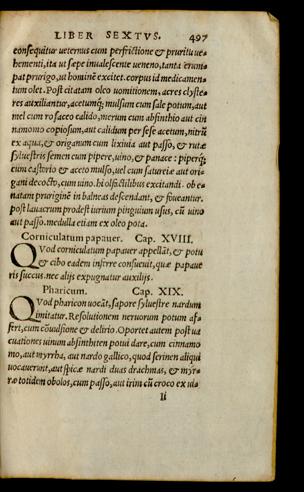 LIBER SEXTVS. 497
consequitur ueternus cum perfrictione & pruritu ue-
hementi, ita ut sæpe inualescente ueneno, tanta erum-
pat prurigo, ut hominē excitet. corpus id medicamen-
tum olet. Post citatam oleo uomitionem, acres clyste-
res auxiliantur, acetumq́; mulsum cum sale potum, aut
mel cum rosaceo calido, merum cum absinthio aut cin
namomo copiosum, aut calidum per sese acetum, nitrū
ex aqua, & origanum cum lixiuia aut passo, & rutæ
syluestris semen cum pipere, uino, & panace: piperq́;
cum castorio & aceto mulso, uel cum satureiæ aut ori-
gani decocto, cum uino. hi olfactilibus excitandi. ob e-
natam pruriginem in balneas descendant, & foueantur.
post lauacrum prodest iurium pinguium usus, cū uino
aut passo. medulla etiam ex oleo pota.
Corniculatum papauer. Cap. XVIII.
QVod corniculatum papauer appellāt, & potu
& cibo eadem inferre consueuit, quæ papaue
ris succus. nec alijs expugnatur auxilijs.
Pharicum. Cap. XIX.
QVod pharicon uocāt, sapore syluestre nardum
imitatur. Resolutionem neruorum potum af-
fert, cum cōuulsione & delirio. Oportet autem post ua
cuationes uinum absinthiten potui dare, cum cinnamo
mo, aut myrrha, aut nardo gallico, quod serinen aliqui
uocauerunt, aut spicæ nardi duas drachmas, & myr-
ræ totidem obolos, cum passo, aut irim cū croco ex ui-
Ii